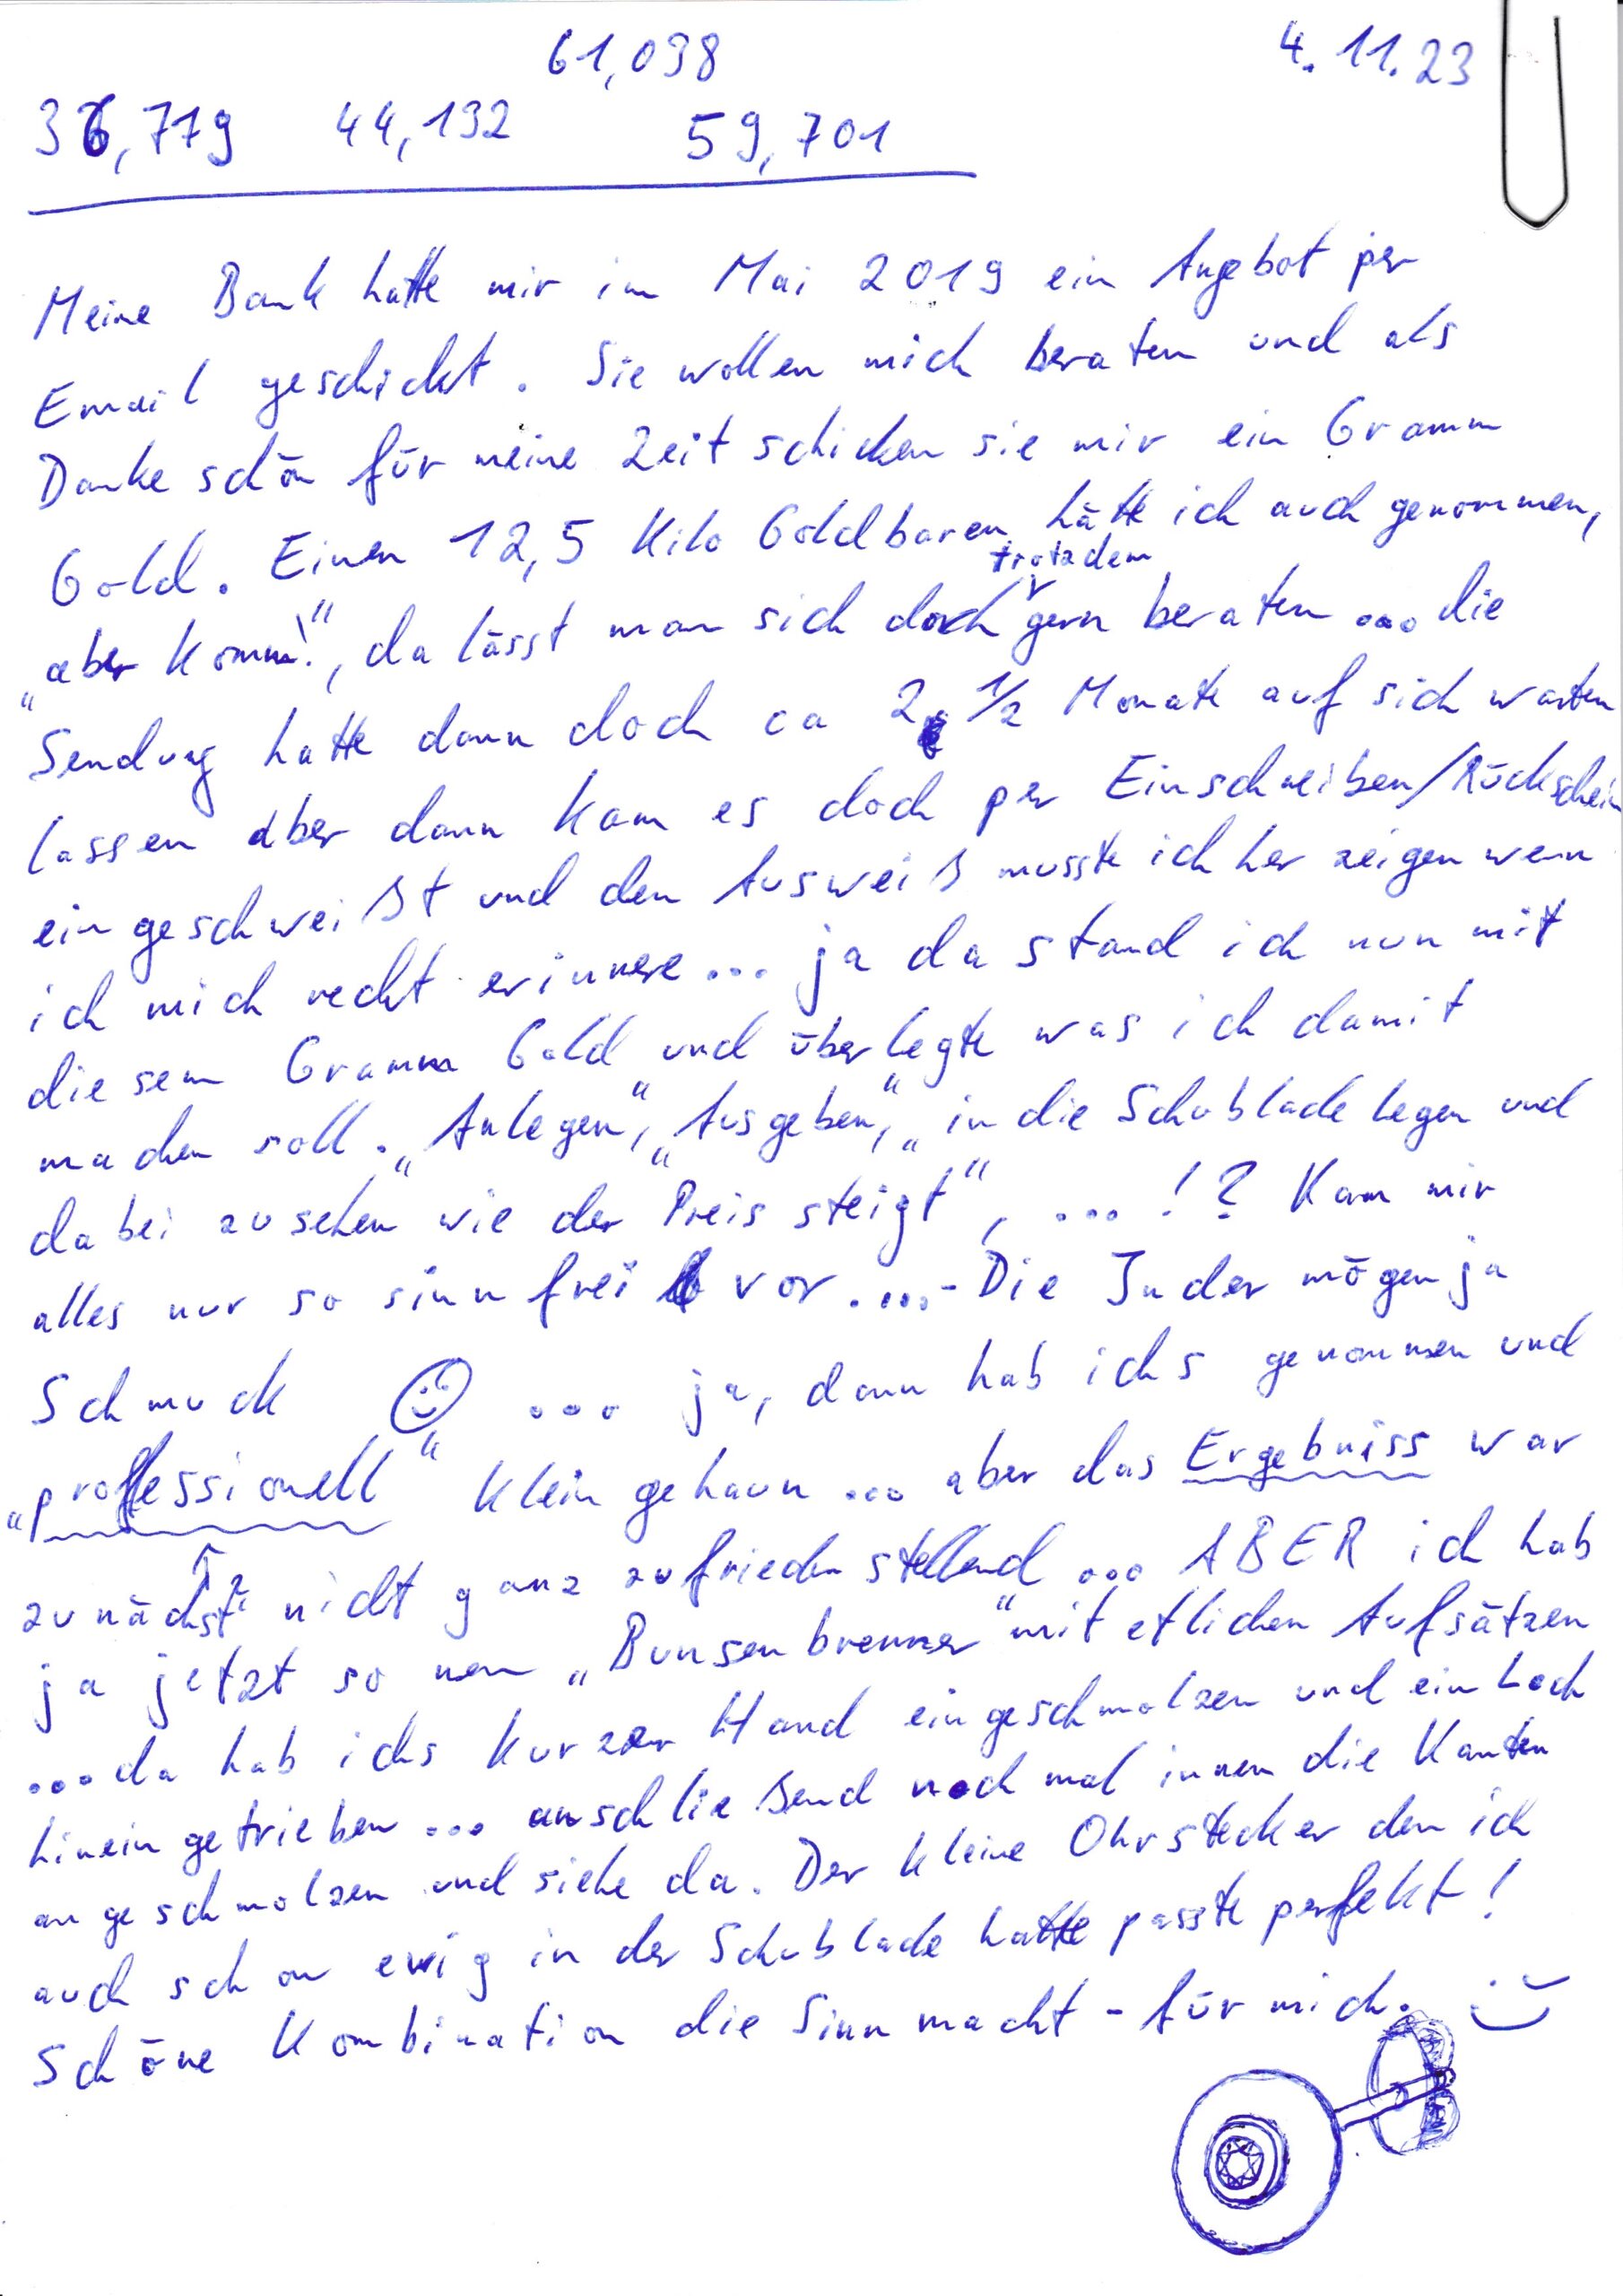 61,038
4.11.23
36,779 44,132 59,701
Meine Bank hatte mir im Mai 2019 ein Angebot per
Email geschickt. Sie wollen mich beraten und als
Danke schön für meine Zeit schicken sie mir ein Gramm
Gold. Einen 12,5 Kilo Goldbaren hätte ich auch genommen,
trotzdem
„aber komm!", da lässt man sich doch gern beraten ... die
Sendung hatte dann doch ca 2 1/2 Monate auf sich warten
lassen aber dann kam es doch per Einschreiben/Rückschein
eingeschweißt und den Ausweiß musste ich her zeigen wenn
ich mich recht erinnere ... ja da stand ich nun mit
diesem Gramm Gold und überlegte was ich damit
machen soll. „Anlegen", „Ausgeben", „in die Schublade legen und
dabei zusehen wie der Preis steigt", ... !? Kam mir
alles nur so sinnfrei vor....- Die Inder mögen ja
Schmuck ☺ ... ja, dann hab ichs genommen und
„professionell" klein gehaun ... aber das Ergebniss war
zunächst nicht ganz zufrieden stellend ... ABER ich hab
ja jetzt so nen „Bunsenbrenner" mit etlichen Aufsätzen
... da hab ichs kurzer Hand eingeschmolzen und ein Loch
hinein getrieben ... anschließend noch mal innen die Kanten
angeschmolzen und siehe da. Der kleine Ohrstecker den ich
auch schon ewig in der Schublade hatte passte perfekt!
Schöne Kombination die Sinn macht - für mich. :)